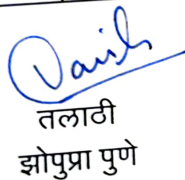 तलाठी
झोपुप्रा पुणे